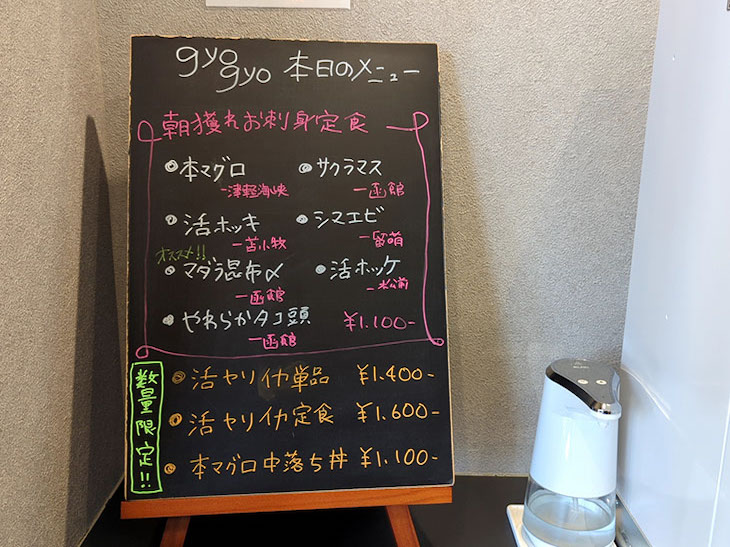 gyo gyo 本日のメニュー
朝獲れお刺身定食
●本マグロ ●サクラマス
-津軽海峡 -函館
●活ホッキ ●シマエビ
-苫小牧 -留萌
オススメ!!
●マダラ昆布〆 ●活ホッケ
-函館 -松前
●やわらかタコ頭 ¥1.100-
-函館
数量限定!!
●活ヤリイカ単品 ¥1.400-
●活ヤリイカ定食 ¥1.600-
●本マグロ中落ち丼 ¥1.100-